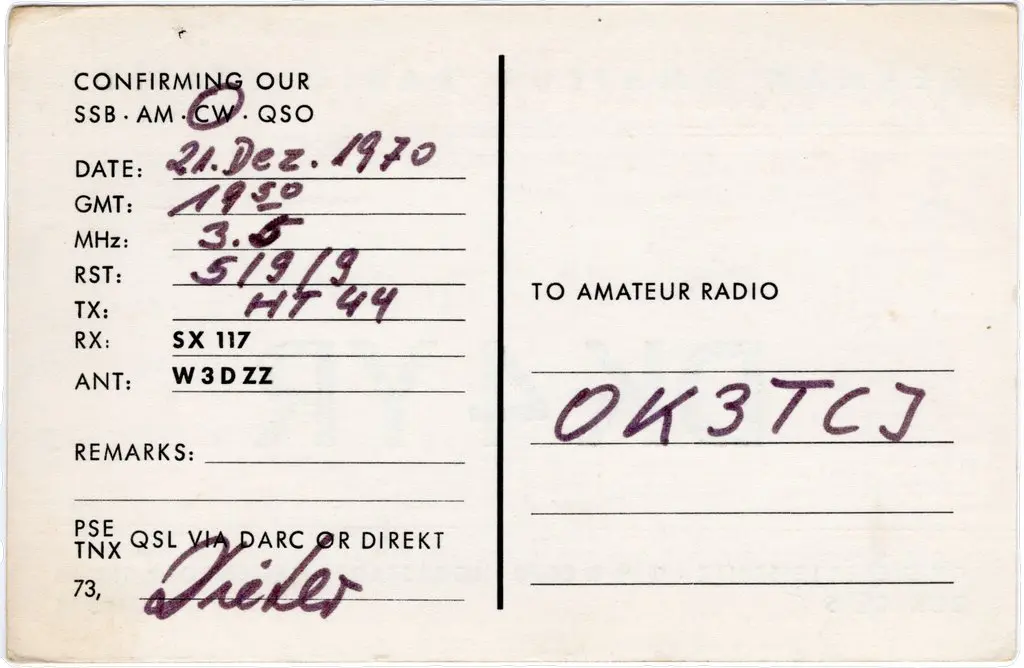 CONFIRMING OUR
SSB · AM · CW · QSO
DATE: 21. Dez. 1970
GMT: 19 50
MHz: 3.5
RST: 5/9/9
TX: HT 44
RX: SX 117
ANT: W3DZZ
REMARKS:
PSE
TNX QSL VIA DARC OR DIREKT
73, Dieter
TO AMATEUR RADIO
OK3TCJ